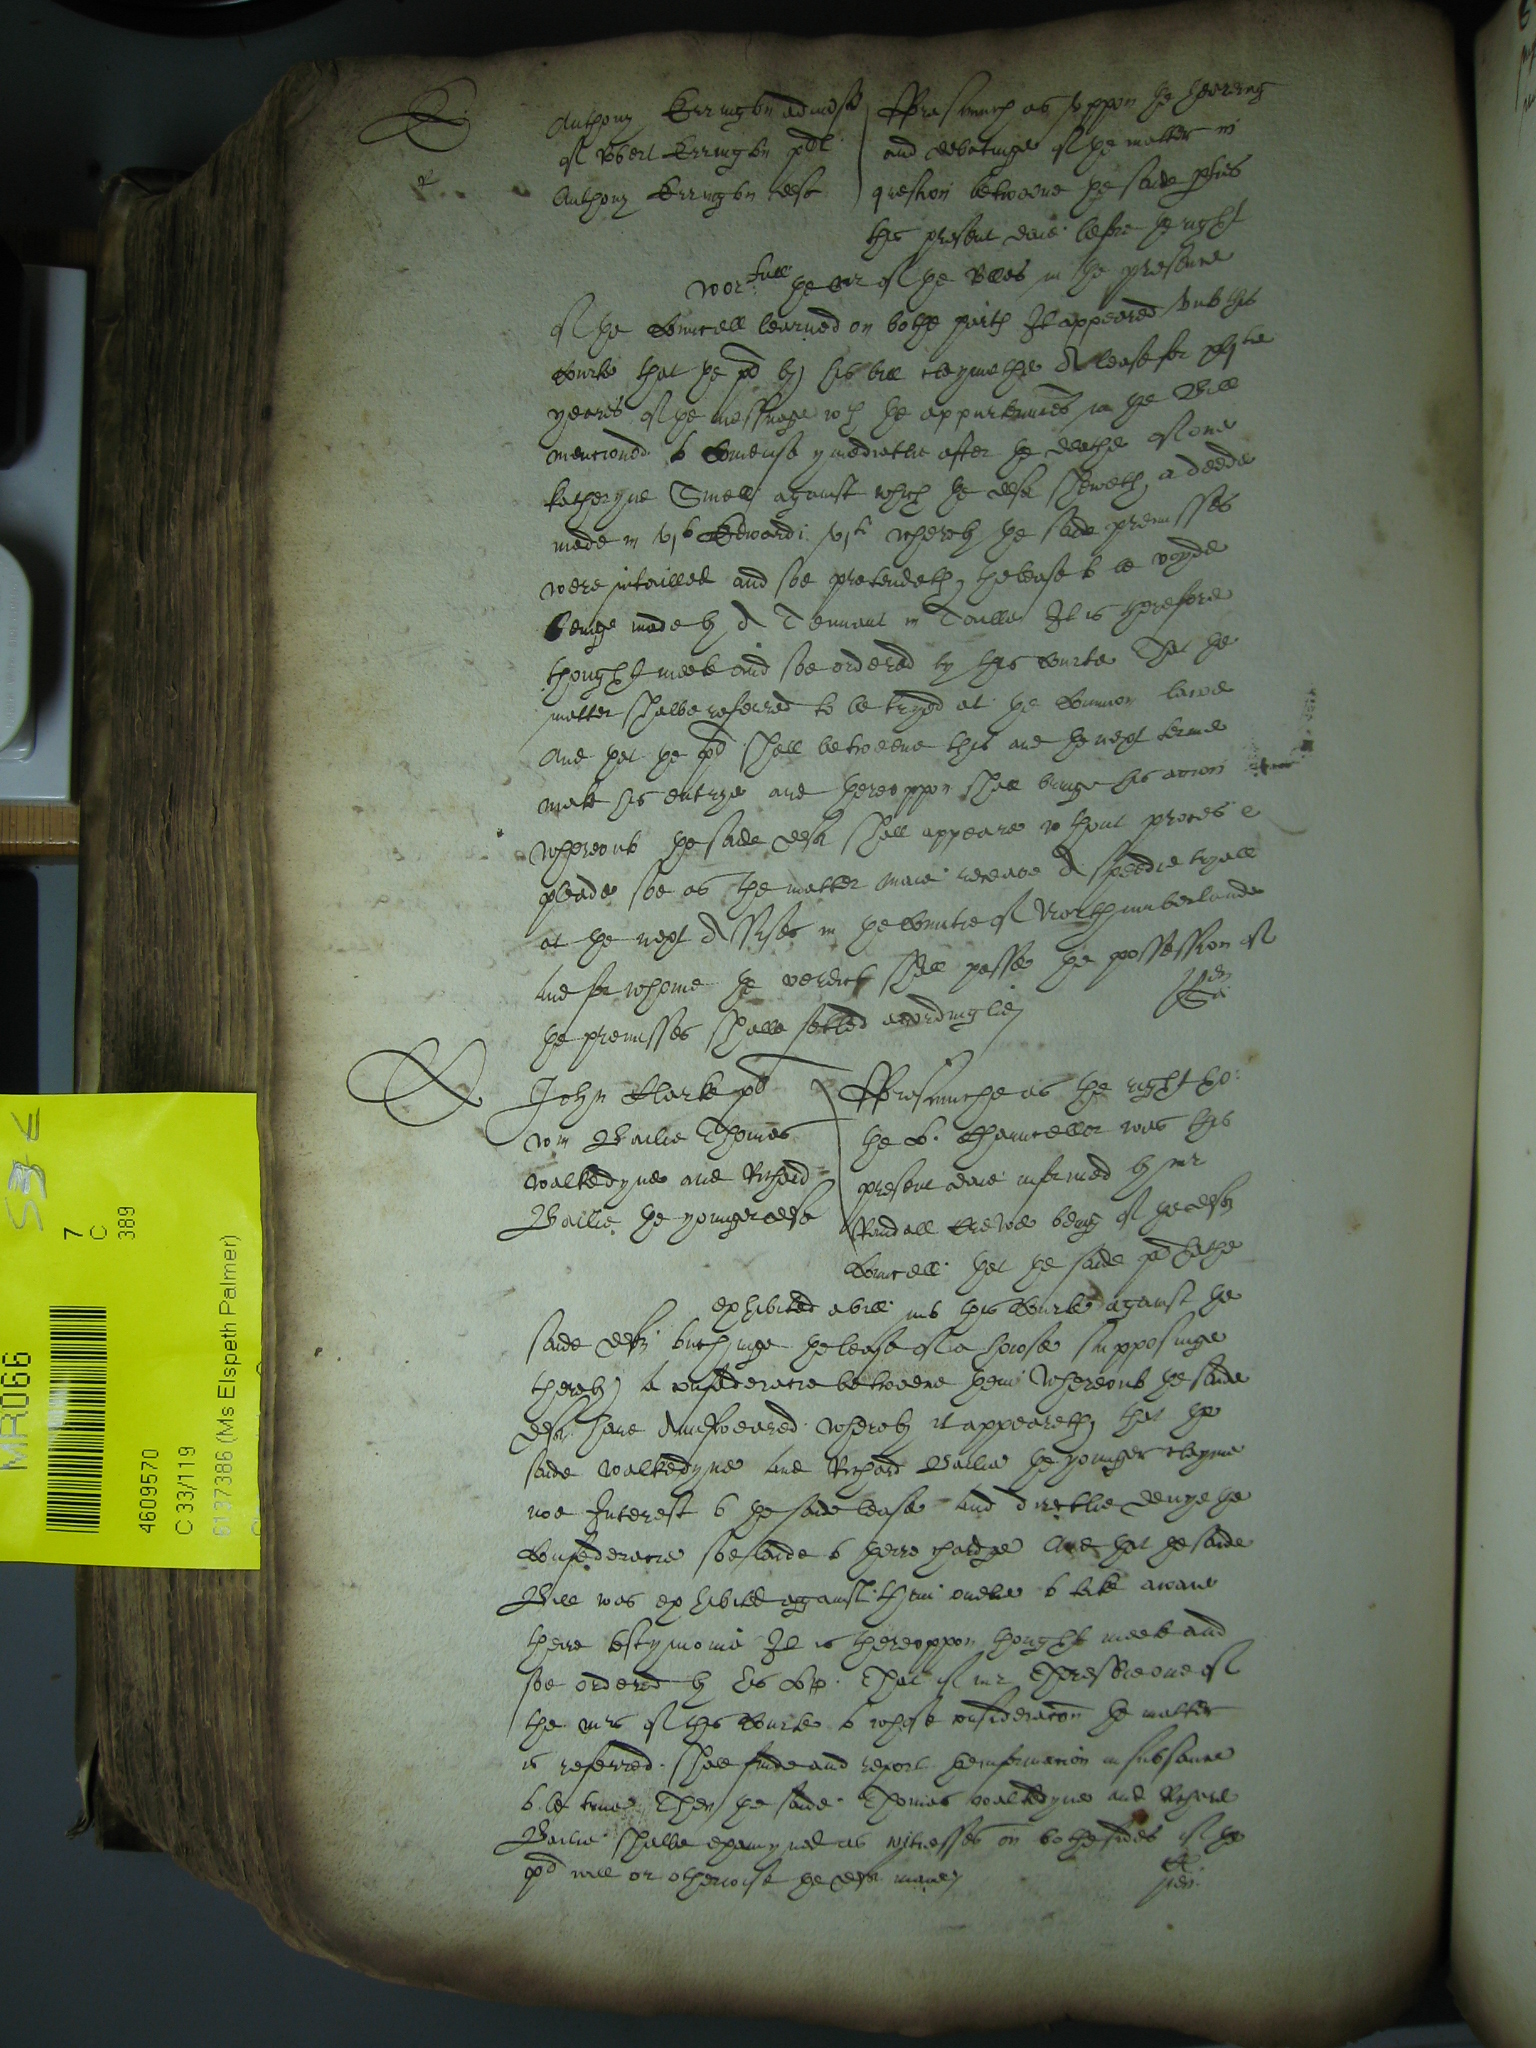 Anthony Errington administr
of Robert Errington pl
Anthony Errington deft
Forasmuch as uppon the hearing
and debatinge of the matter in
question betweene the saide pties
this present daie before the right
wor:full the Mr of the Rolles in the presence
of the Councell learned on bothe parts It appeared unto this
Courte that the pl by his bill claymethe A lease for
yeares of the messuage wth the appurtennces in the Bill
mencioned to Comense ymediatlie after the deathe of one
Katheryne against which the deft sheweth a deede
made in Edwardi vjti wherby the saide premisses
were intailled and soe pretendeth the lease to be voyde
beinge made by A Tennant in Taille It is therefore
thought meete and soe ordered by this Courte That the
matter shalbe referred to be tryed at the Common lawe
And that the pl shall betweene this and the next terme
make his entrye and thereuppon shall bringe his action
whereunto the saide deft shall appeare wthout proces &
pleade soe as the matter maie receave A speedie tryall
at the next Assises in the Countie of Northumberlande
And for whome the verdict shall passe the possession of
the premisses shalbe setled accordinglie
John Clarke pl
Wm Bailie Thomas
Walkedyne and Richard
Bailie the younger defts
Forasmuche as the right ho:
the L. Chauncellor was this
present daie informed by mr
Randall Crewe being of the defts
Councell that the saide pl hathe
exhibited a bill into this Courte against the
saide defts touchinge the lease of a howse supposinge
thereby a confederacie betweene them Whereunto the saide
defts have Aunsweared wherby it appeareth that the
saide Walkedyne and Richard Bailie the younger clayme
noe Interest to the saide lease and directlie denye the
Confederacie soe laide to theire chardge And that the saide
Bill was exhibited against them onelie to take awaie
theire testymonie It is thereuppon thought meete and
soe ordered by his Lop. That if mr one of
the mrs of this Courte to whose consideracon the matter
is referred shall finde and report the informacion in substance
to be true Then the saide Thomas Walkedyne and Richard
Bailie shalbe examyned as witnesses on bothe sides if the
pl will or otherwise the defts maie
MR066
7
C
389
4609570
C 33/119
6137386 (Ms Elspeth Palmer)